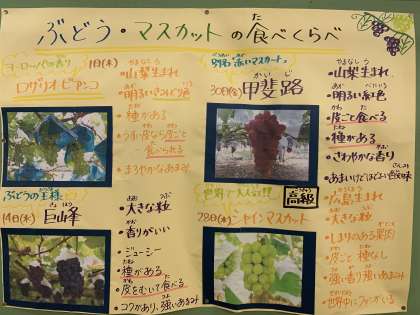 ぶどう・マスカットの食べくらべ
ヨーロッパの香り
1日(木)
ロザリオビアンコ
・山梨生まれ
・明るいきみどり色
・種がある
・うすい皮なら皮ごと食べられる
・まろやかなあまみ
別名"赤いマスカット"
30日(金)
甲斐路
・山梨生まれ
・明るい紅色
・皮ごと食べる
・種がある
・さわやかな香り
・あまいけどほどよい酸味
ぶどうの王様
14日(水)
巨峰
・大きな粒
・香りがいい
・ジューシー
・種がある
・皮をむいて食べる
・コクがあり、強いあまみ
世界で大人気!!
高級
28日(水)
シャインマスカット
・広島生まれ
・大きな粒
・しまりのある果肉
・皮ごと種なし
・強い香り強いあまみ
・世界中にファンがいる